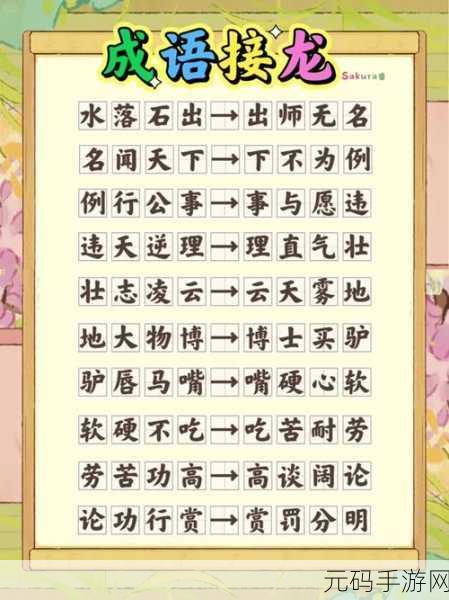 成语接龙
Sakura酱
水落石出→出师无名
名闻天下→下不为例
例行公事→事与愿违
违天逆理→理直气壮
壮志凌云→云天雾地
地大物博→博士买驴
驴唇马嘴→嘴硬心软
软硬不吃→吃苦耐劳
劳苦功高→高谈阔论
论功行赏→赏罚分明
元码手游网